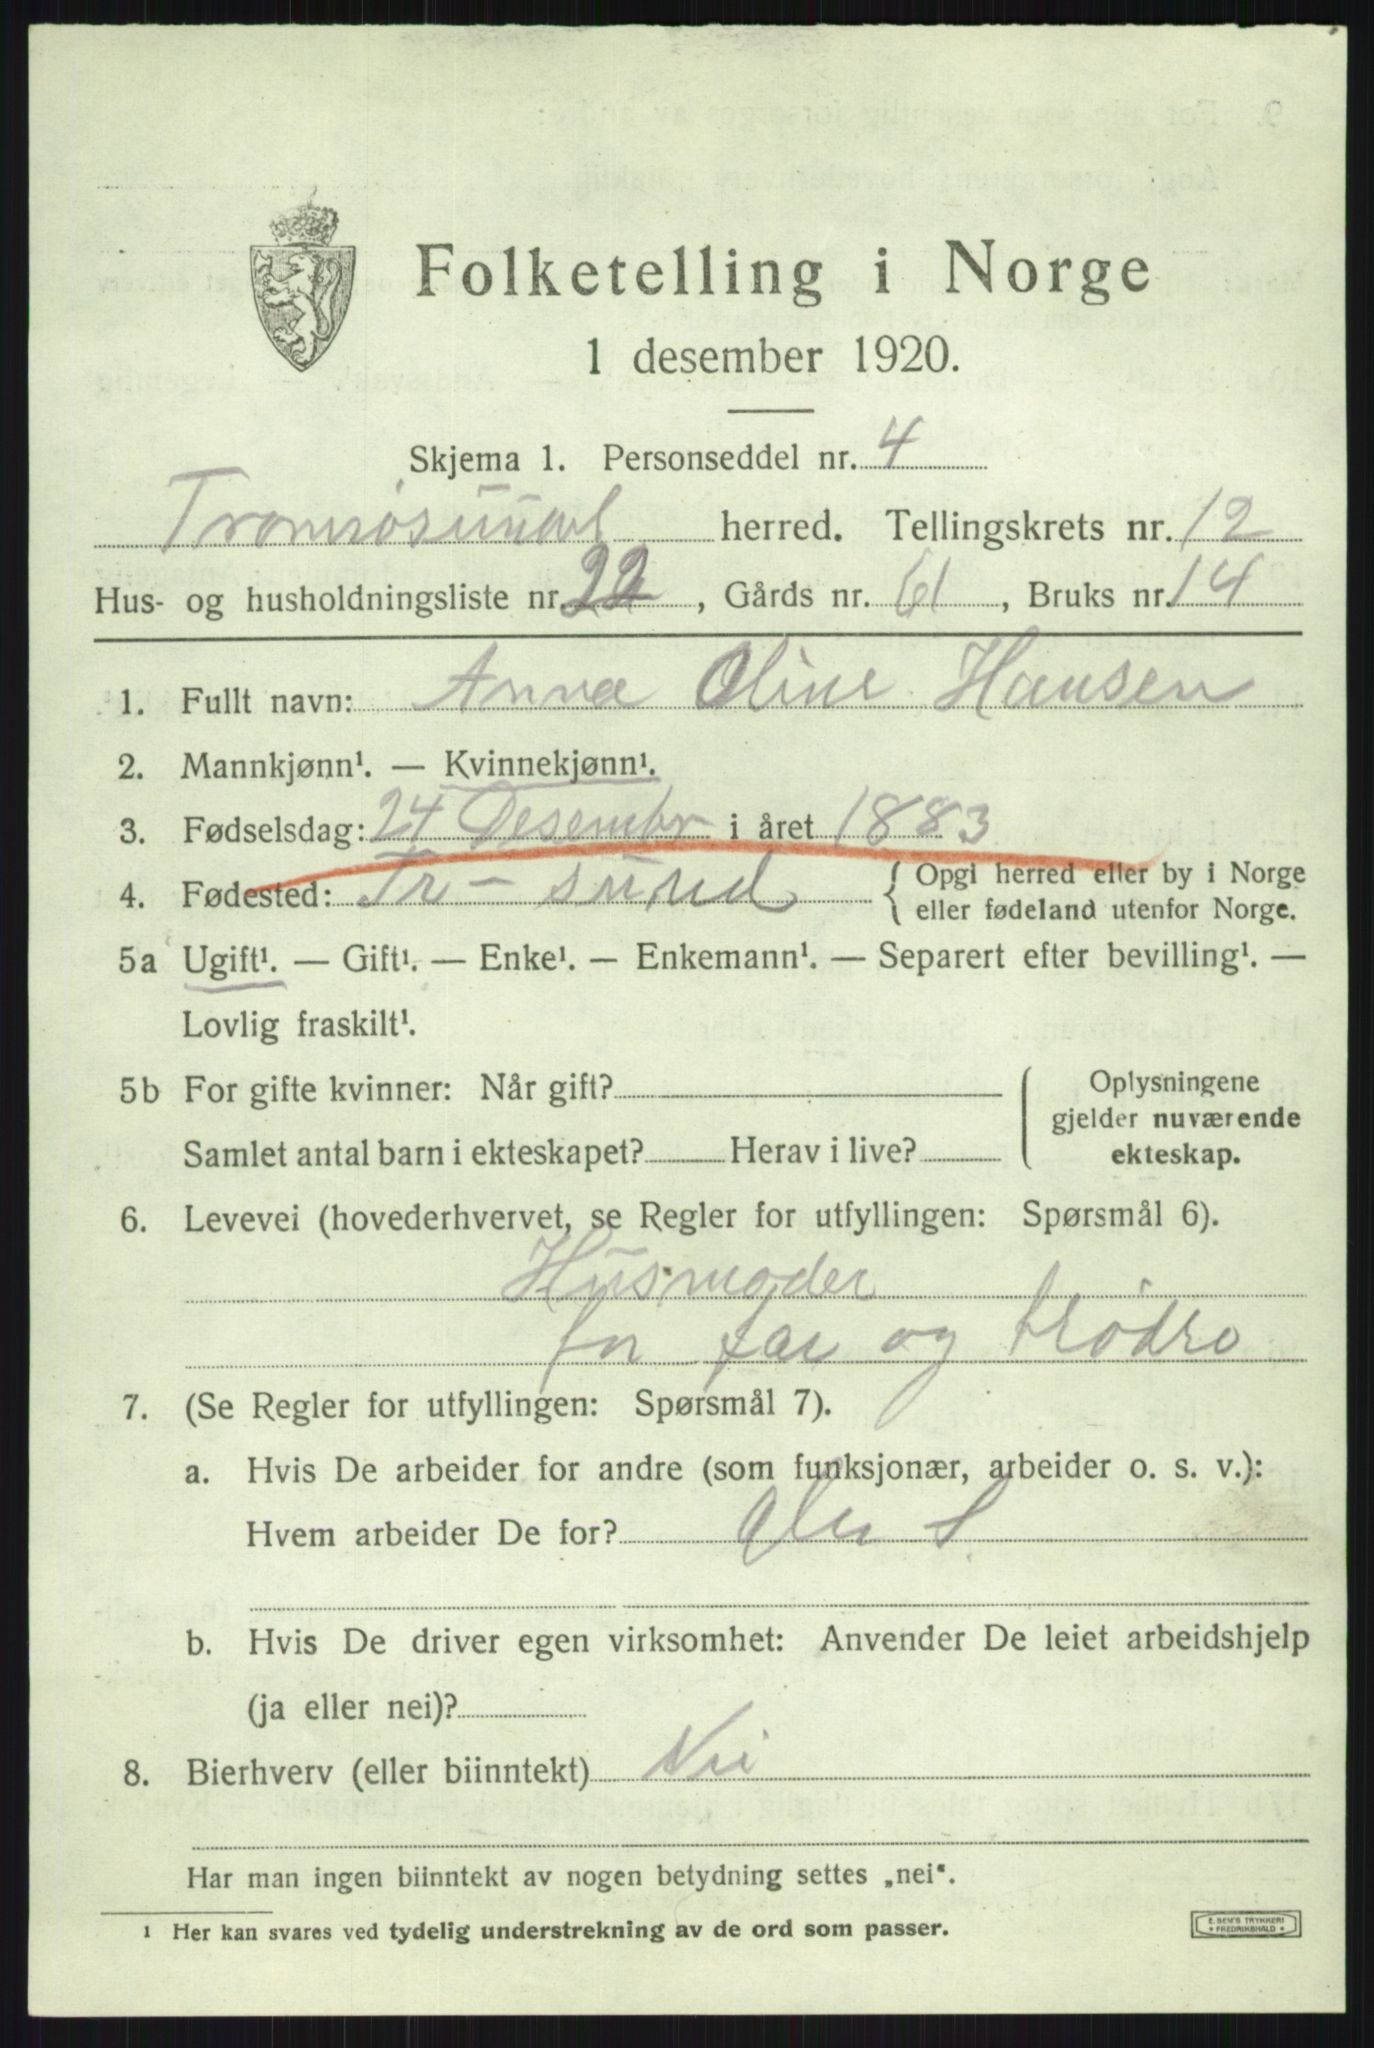 Folketelling i Norge
1 desember 1920.
Skjema 1. Personseddel nr. 4
Tromsøsund herred. Tellingskrets nr. 12
Hus- og husholdningsliste nr. 22, Gårds nr. 61, Bruks nr. 14
1. Fullt navn: Anna Oline Hansen
2. Mannkjønn¹. — Kvinnekjønn¹.
3. Fødselsdag: 24 Desember i året 1883
4. Fødested: Tr-sund { Opgi herred eller by i Norge
eller fødeland utenfor Norge.
5a Ugift¹. — Gift¹. — Enke¹. — Enkemann¹. — Separert efter bevilling¹. —
Lovlig fraskilt¹.
5b For gifte kvinner: Når gift?
Samlet antal barn i ekteskapet? Herav i live?
Oplysningene
gjelder nuværende
ekteskap.
6. Levevei (hovederhvervet, se Regler for utfyllingen: Spørsmål 6).
Husmoder
for far og brødre
7. (Se Regler for utfyllingen: Spørsmål 7).
a. Hvis De arbeider for andre (som funksjonær, arbeider o. s. v.):
Hvem arbeider De for?
b. Hvis De driver egen virksomhet: Anvender De leiet arbeidshjelp
(ja eller nei)?
8. Bierhverv (eller biinntekt) Nei
Har man ingen biinntekt av nogen betydning settes „nei“.
1 Her kan svares ved tydelig understrekning av de ord som passer.
E. SEM'S TRYKKERI
* FREDRIKSHALD *